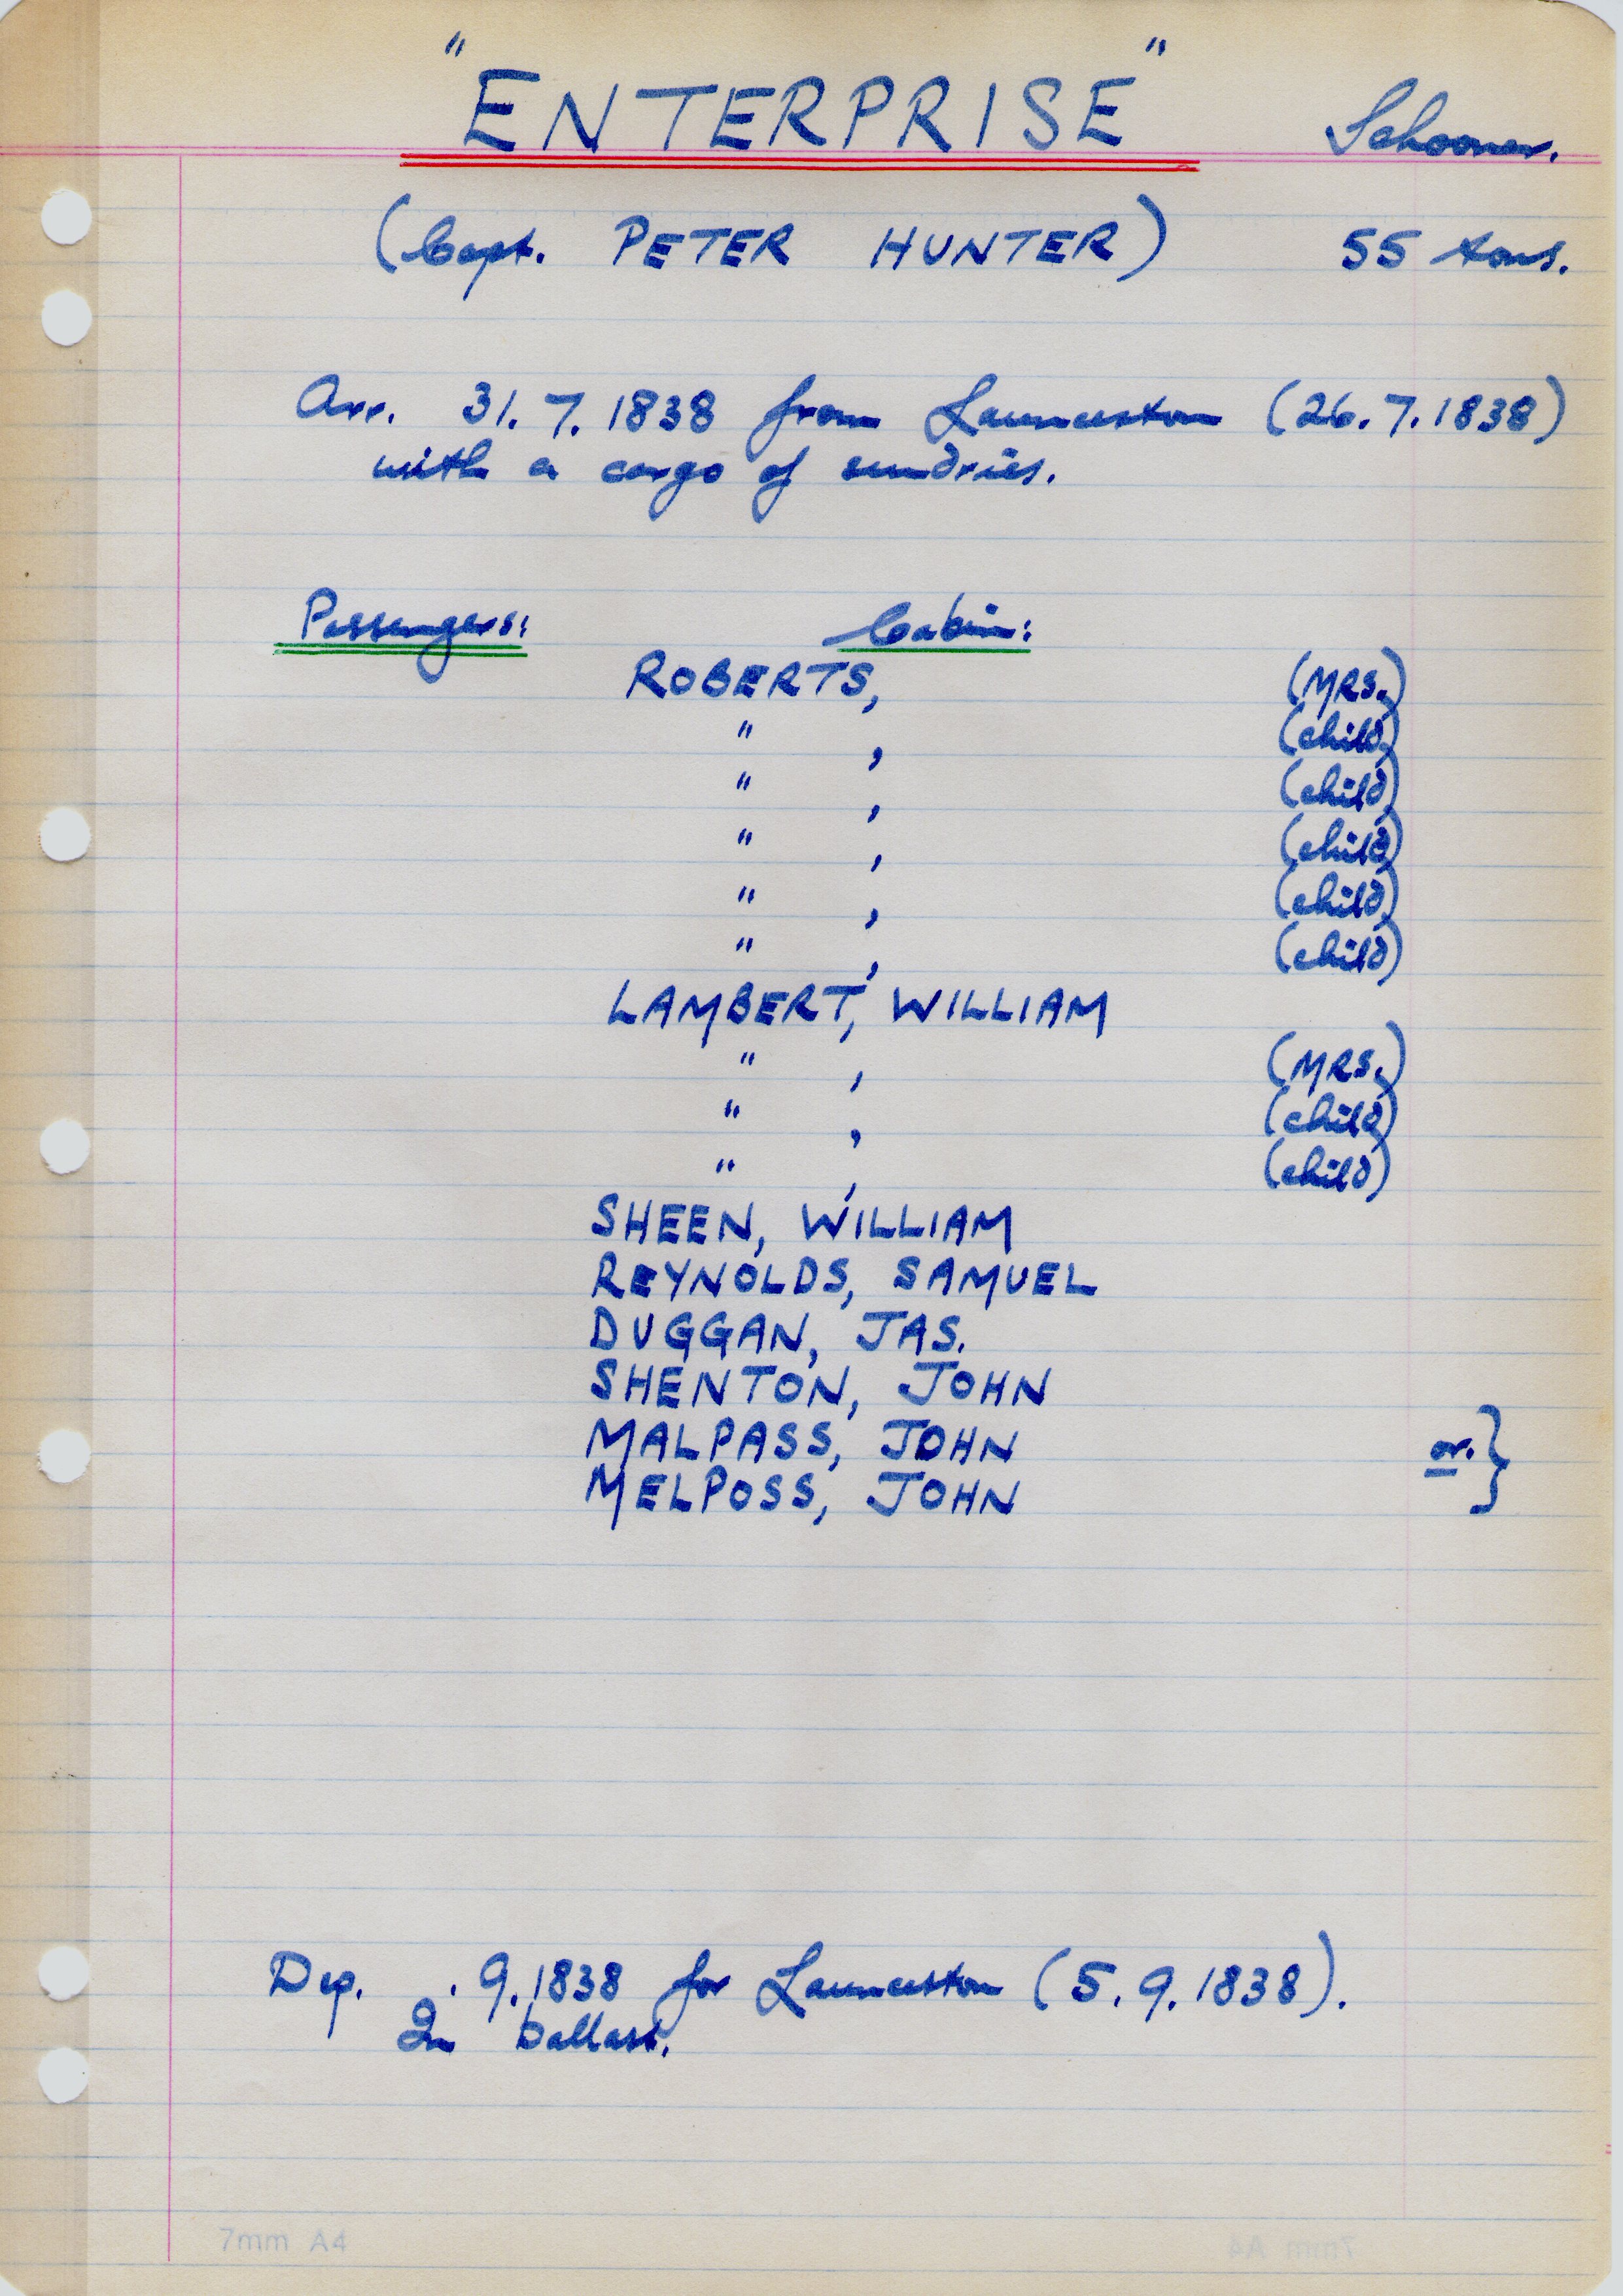 "ENTERPRISE" Schooner.
(Capt. PETER HUNTER) 55 tons.
Arr. 31.7.1838 from Launceston (26.7.1838)
with a cargo of sundries.
Passengers: Cabin:
ROBERTS, (MRS.)
" , (child)
" , (child)
" , (child)
" , (child)
" , (child)
LAMBERT, WILLIAM
" , (MRS.)
" , (child)
" , (child)
SHEEN, WILLIAM
REYNOLDS, SAMUEL
DUGGAN, JAS.
SHENTON, JOHN
MALPASS, JOHN or. }
MELPOSS, JOHN
Dep. .9.1838 for Launceston (5.9.1838).
In ballast.
7mm A4